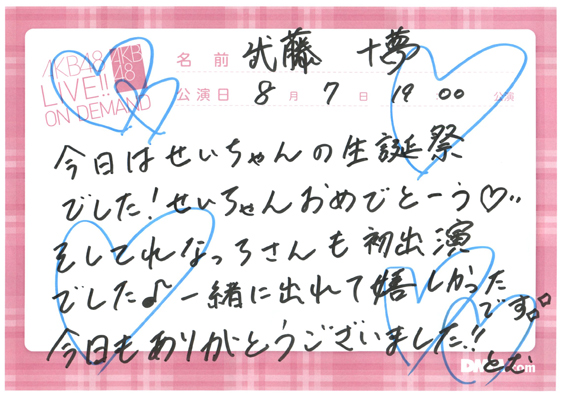 AKB48
LIVE!!
ON DEMAND
AKB
48
名前 武藤 十夢
公演日 8月 7日 19 00 公演
今日はせいちゃんの生誕祭
でした!せいちゃんおめでとーう♡
そしてれなっちさんも初出演
でした♪一緒に出れて嬉しかった
です。
今日もありがとうございました!!
とむ
DMM.com